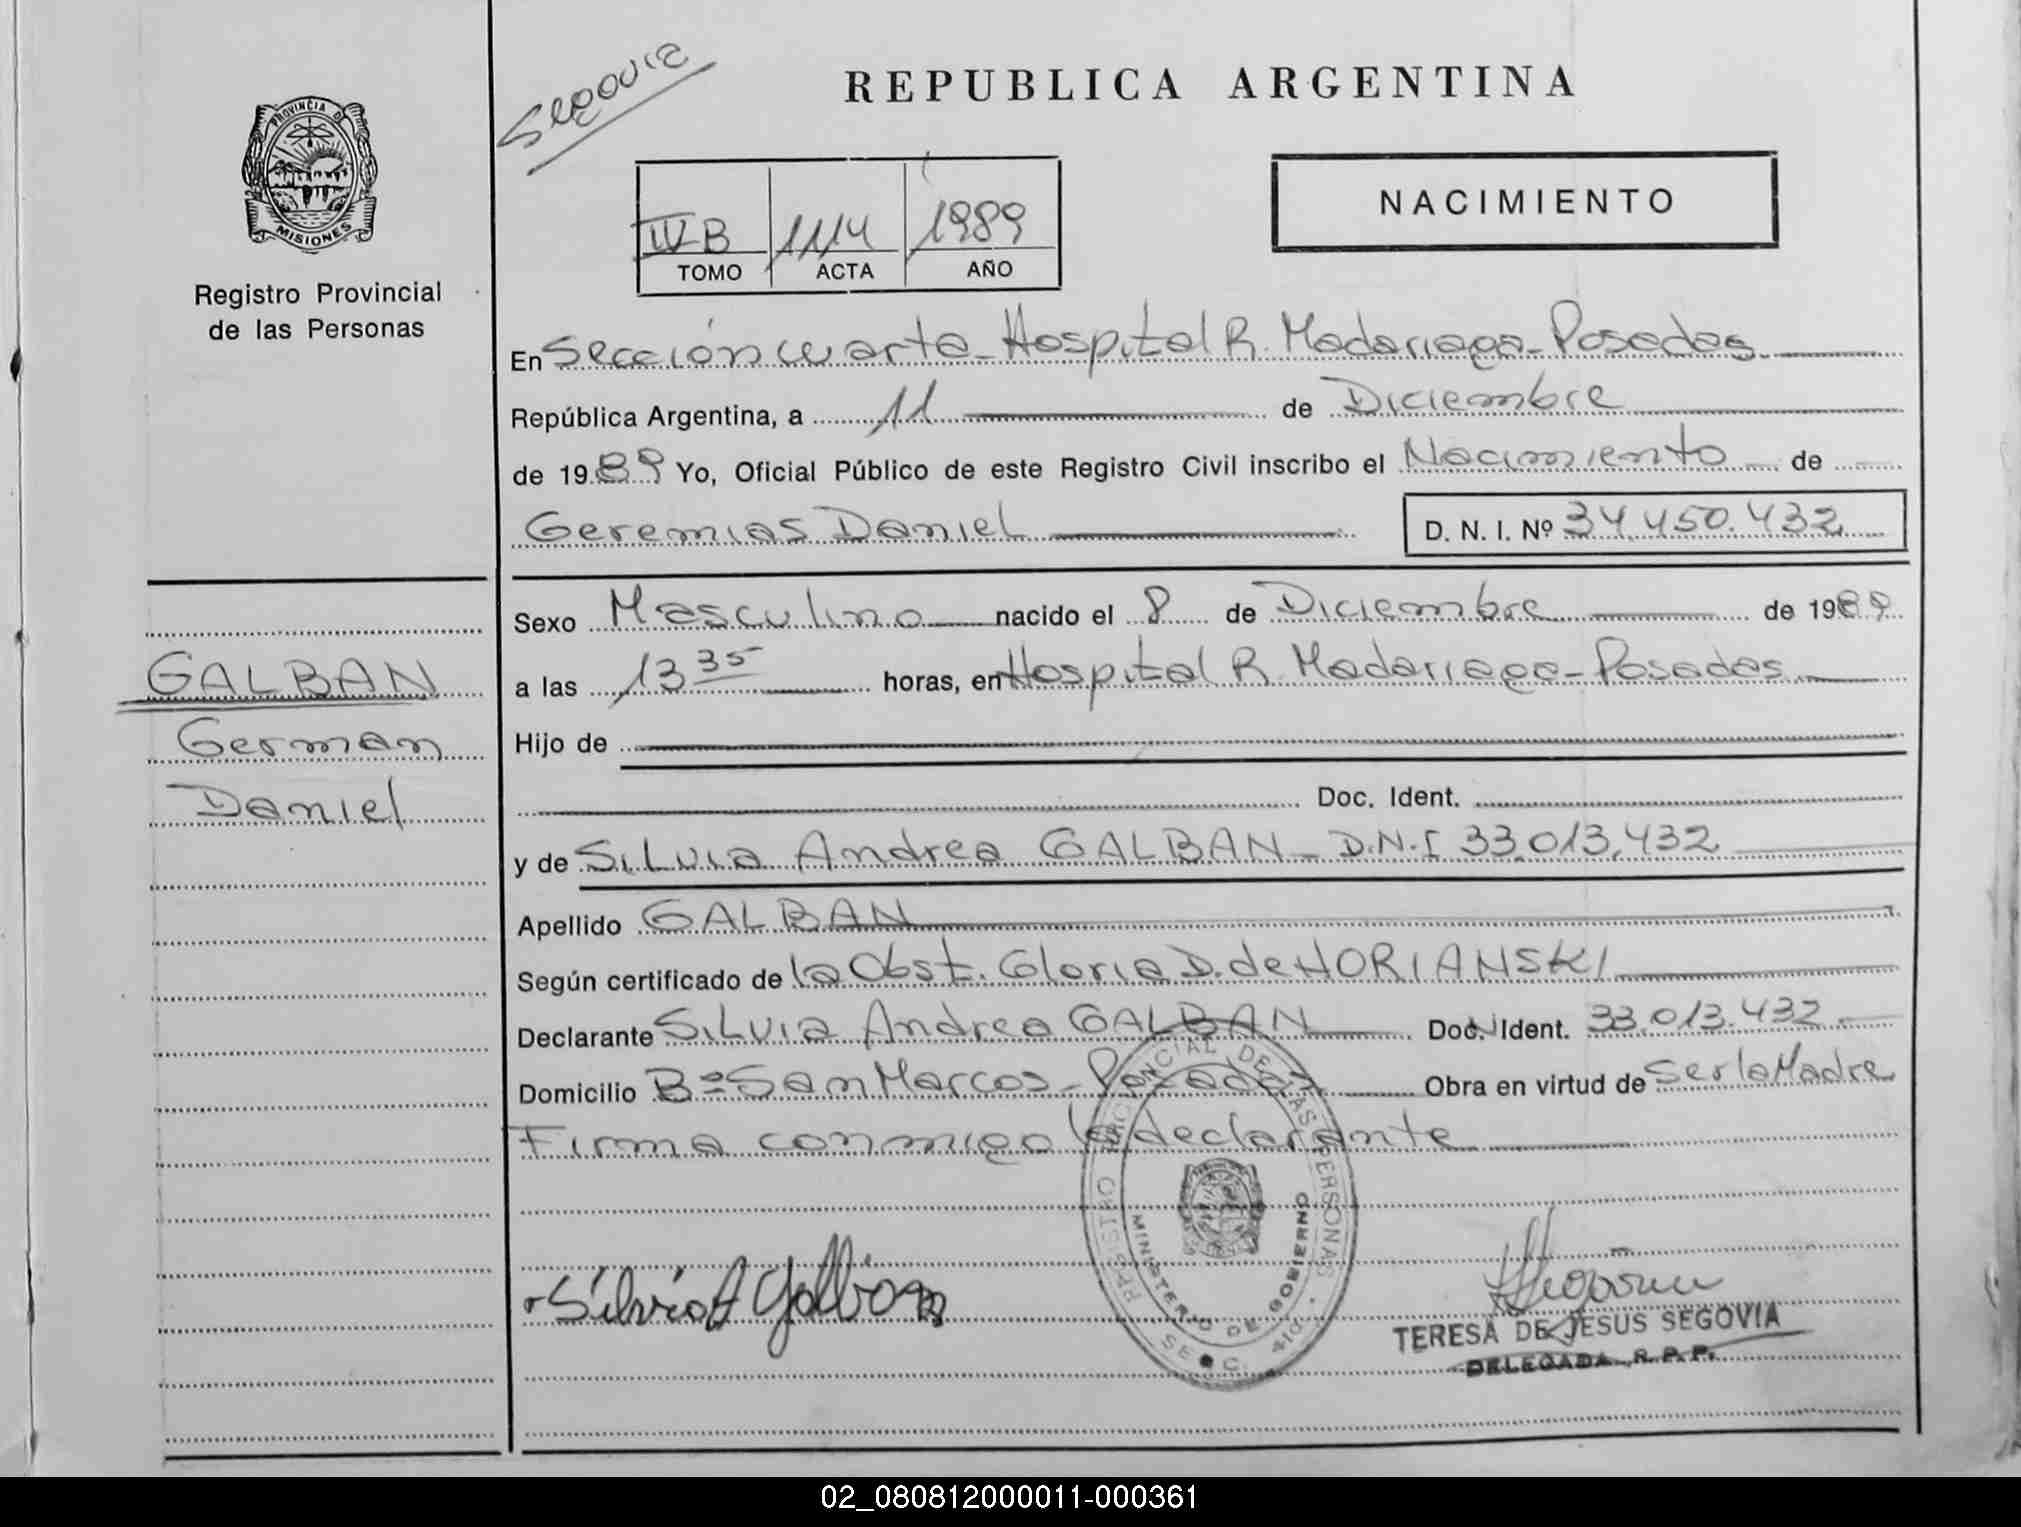 Segovia
REPUBLICA ARGENTINA
PROVINCIA DE
MISIONES
Registro Provincial
de las Personas
IV B 1114 1989
TOMO ACTA AÑO
NACIMIENTO
En Sección cuarta - Hospital R. Madariaga - Posadas
República Argentina, a 11 de Diciembre
de 1989 Yo, Oficial Público de este Registro Civil inscribo el Nacimiento de
Geremias Daniel D. N. I. Nº 34.450.432
Sexo Masculino nacido el 8 de Diciembre de 1989
a las 13 35 horas, en Hospital R. Madariaga - Posadas
Hijo de
Doc. Ident.
y de Silvia Andrea GALBAN - D.N.I 33.013.432
Apellido GALBAN
Según certificado de la Obst. Gloria D. de HORIANSKI
Declarante Silvia Andrea GALBAN Doc. Ident. 33.013.432
Domicilio Bº San Marcos - Posadas Obra en virtud de Ser la Madre
Firma conmigo la declarante
GALBAN
German
Daniel
Silvia A Galban
REGISTRO PROVINCIAL DE LAS PERSONAS
MINISTERIO DE GOBIERNO
Segovia
TERESA DE JESUS SEGOVIA
DELEGADA R. P. P.
02_080812000011-000361